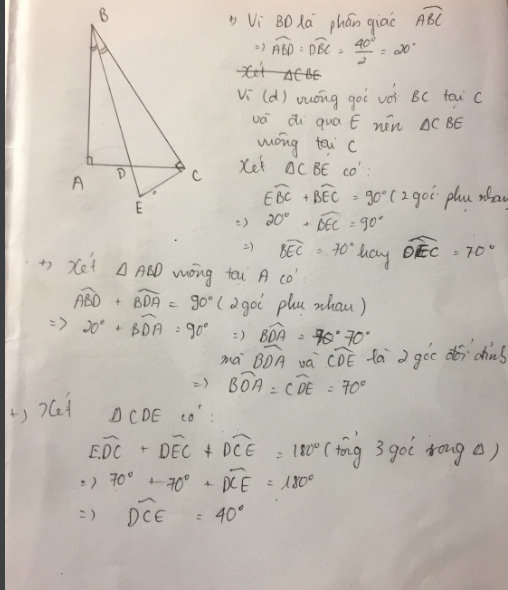 B
A
D
C
E
+) Vì BD là phân giác \widehat{ABC}
=> \widehat{ABD} = \widehat{DBC} = \frac{40°}{2} = 20°
Xét ΔCBE
Vì (d) vuông góc với BC tại C
và đi qua E nên ΔCBE
vuông tại C
Xét ΔCBE có:
\widehat{EBC} + \widehat{BEC} = 90° (2 góc phụ nhau)
=> 20° + \widehat{BEC} = 90°
=> \widehat{BEC} = 70° hay \widehat{DEC} = 70°
+) Xét ΔABD vuông tại A có
\widehat{ABD} + \widehat{BDA} = 90° (2 góc phụ nhau)
=> 20° + \widehat{BDA} = 90° => \widehat{BDA} = 70°
mà \widehat{BDA} và \widehat{CDE} là 2 góc đối đỉnh
=> \widehat{BDA} = \widehat{CDE} = 70°
+) Xét ΔCDE có:
\widehat{EDC} + \widehat{DEC} + \widehat{DCE} = 180° (tổng 3 góc trong Δ)
=> 70° + 70° + \widehat{DCE} = 180°
=> \widehat{DCE} = 40°